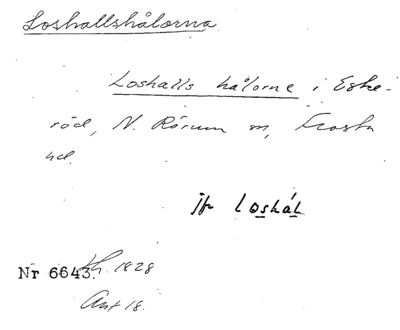 Loshallshålorna
Loshalls hålorne i Eske-
röd, N. Rörum sn, Frosta
hd.
jfr Loshål
Nr 6643. Lh. 1828
Ant 18.